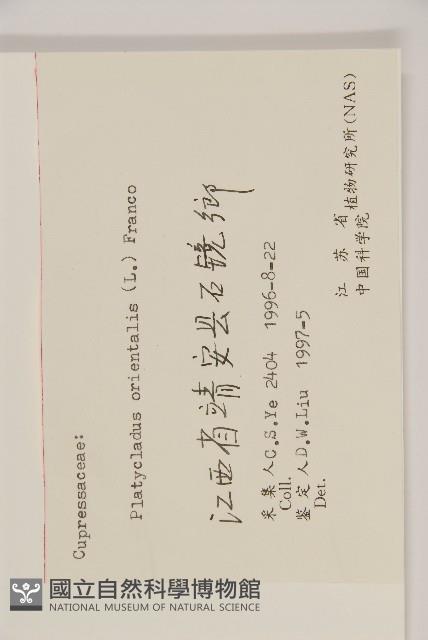 Cupressaceae:
Platycladus orientalis (L.) Franco
江西省靖安县石镜鄉
采集人C.S.Ye 2404 1996-8-22
Coll.
鉴定人D.W.Liu 1997-5
Det.
江苏省植物研究所(NAS)
中国科学院
國立自然科學博物館
NATIONAL MUSEUM OF NATURAL SCIENCE